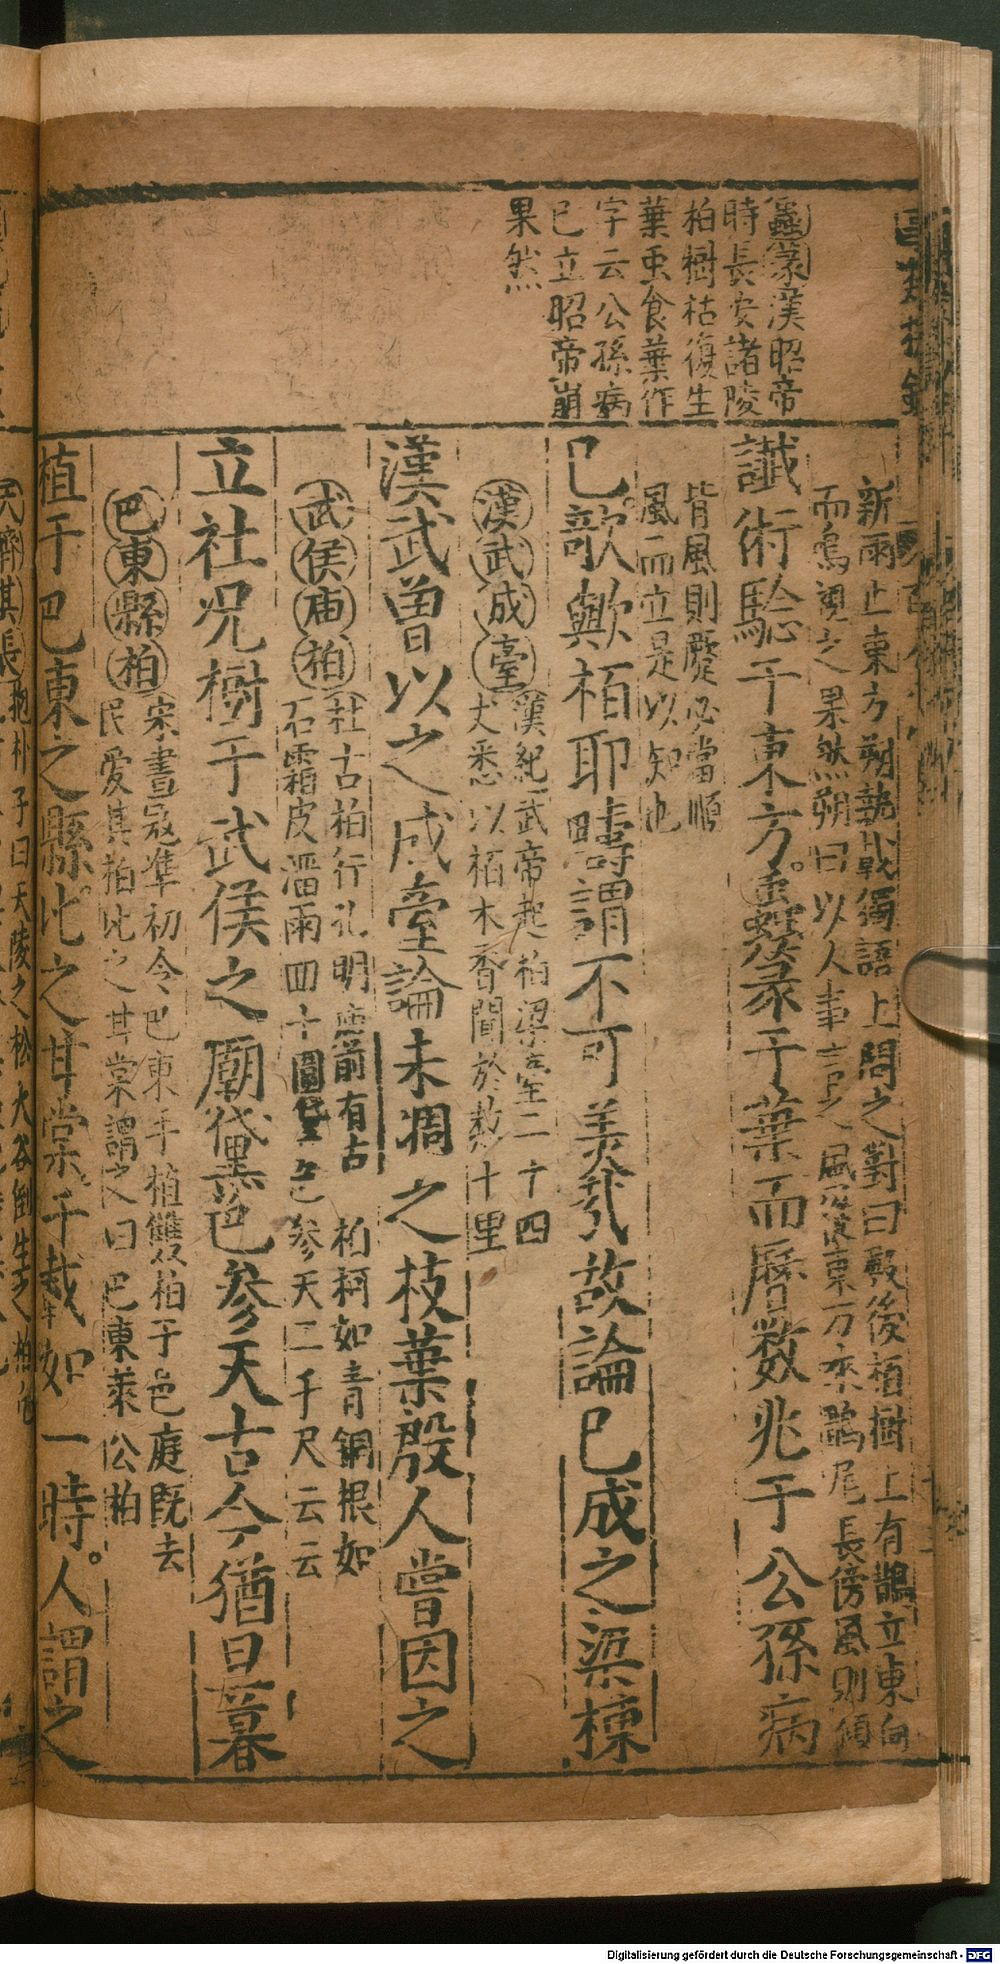 蠱篆漢昭帝
時長安諸陵
柏樹枯復生
葉虫食葉作
字云公孫病
已立昭帝崩
果然
新雨止東方朔執戟獨語上問之對曰殿後柏樹上有鵲立東向
而鳴視之果然朔曰以人事言之風從東方來鵲尾長傍風則傾
讖術驗于東方。蟲篆于葉而曆数兆于公孫病
背風則蹷必當順
風而立是以知也
已歟歟栢耶疇謂不可美哉故論已成之梁棟
漢武成臺
漢紀武帝起柏梁臺二十四
丈悉以栢木香聞於数十里
漢武曾以之成臺論未凋之枝葉殷人嘗因之
武侯庙柏
杜古柏行孔明庙前有古柏柯如青銅根如
石霜皮溜雨四十圍黛色参天二千尺云云
立社况樹于武侯之廟黛色参天古今猶旦暮
巴東縣柏
宋書寇準初令巴東手植雙柏于邑庭既去
民愛其柏比之甘棠謂之曰巴東萊公柏
植于巴東之縣比之甘棠。千載如一時。人謂之
民濟其長
抱朴子曰天陵之松大谷倒生之柏
Digitalisierung gefördert durch die Deutsche Forschungsgemeinschaft - DFG